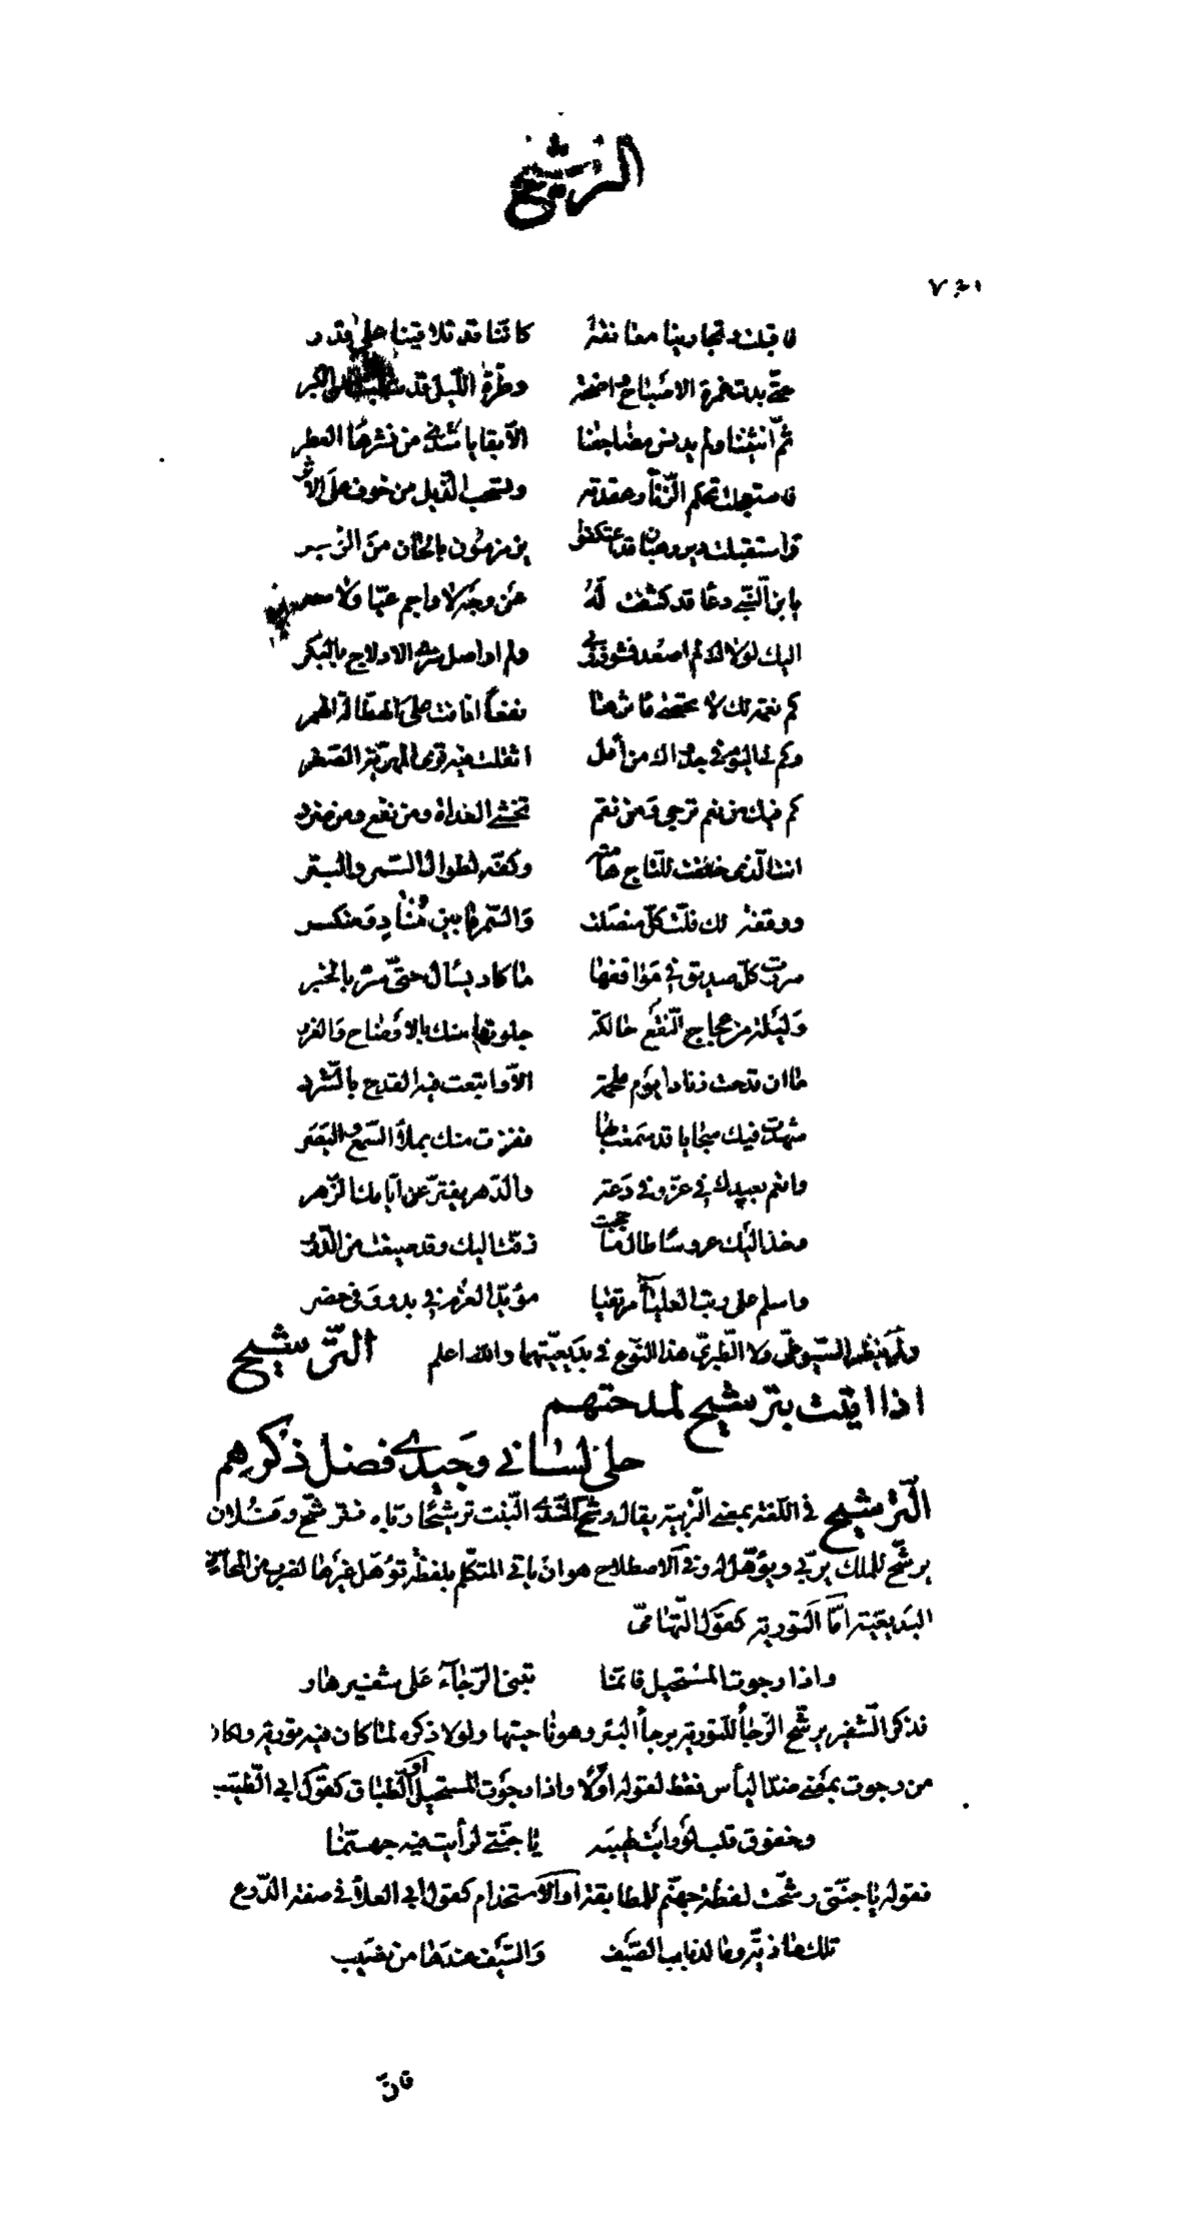 الترشيح
فاقبلت وتجارينا معانقة كاننا قد تلاقينا على قدر
حتى بدت غرة الاصباح واضحة وطرة الليل قد الكبر
ثم انثنينا ولم يدنس مضاجعنا الا بقايا شذى من نشرها العطر
فاستعجلت تحكم وعقدته وتسحب الذيل من خوف على الاثر
واستقبلت دير رهبان قد اعتكفوا يزمزمون بالحان من الزبر
يا بن النبي دعا قد كشفت له عن وجه لا واجم عيا ولا
اليك لولاك لم اصعد ولم اواصل الادلاج بالبكر
كم نعمة لك لا تحصى مآثرها نفعا على الهطالة الهمر
وكم لنا اليوم في جدواك من أمل اثقلت فيه
كم فيك من نعم ترجى ومن نقم تخشى الغداة ومن نفع ومن ضرر
انت الذي خلقت للتاج هامته وكفه لطوال السمر والبتر
ووقفة لك فلت كل منصلت والسمر ما بين منآد ومنكسر
سرت كل صديق في مواقفها ما كاد يسأل حتى سر بالخبر
وليلة من عجاج النقع حالكة جلوتها منك بالاوضاح والغرر
ما ان قدحت زنادا يوم ملحمة الا واتبعت فيه القدح بالشرر
شهدت فيك سجايا قد سمعت بها ففزت منك بملأ السمع والبصر
وانعم بعيدك في عز وفي دعة والدهر يفتر عن ايامك الزهر
وخذ اليك عروسا طالما حجبت زفت اليك وقد صيغت من الدرر
واسلم على رتب العلياء مرتقيا مؤيد العزم في بدو وفي حضر
ولم ينظم السيوطي ولا الطبري هذا النوع في بديعيتهما والله اعلم الترشيح
اذا اتيت بترشيح لمدحتهم
حلى لساني وجيدي فضل ذكرهم
الترشيح في اللغة بمعنى التربية يقال رشح البنت ترشيحا رباه فترشح وفلان
يرشح للملك يربى ويؤهل له وفي الاصطلاح هو ان ياتي المتكلم بلفظة تؤهل غيرها لضرب من المحاسن
البديعية اما التورية كقول التهامي
واذا رجوت المستحيل فانما تبنى الرجاء على شفير هار
فذكر الشفير يرشح الرجا للتورية برجأ البئر وهو ناحيتها ولولا ذكره لما كان فيه تورية وكان
من رجوت بمعنى ضد اليأس فقط لقوله اولا واذا رجوت المستحيل او الطباق كقول ابي الطيب
وخفوق قلب لو رايت لهيبه يا جنتي لرأيت فيه جهنما
فقوله يا جنتي رشحت لفظة جهنم للمطابقة او الاستخدام كقول ابي العلا في صفة الدرع
تلك ماذية وما لذباب الصيف والسيف عندها من نصيب
فان